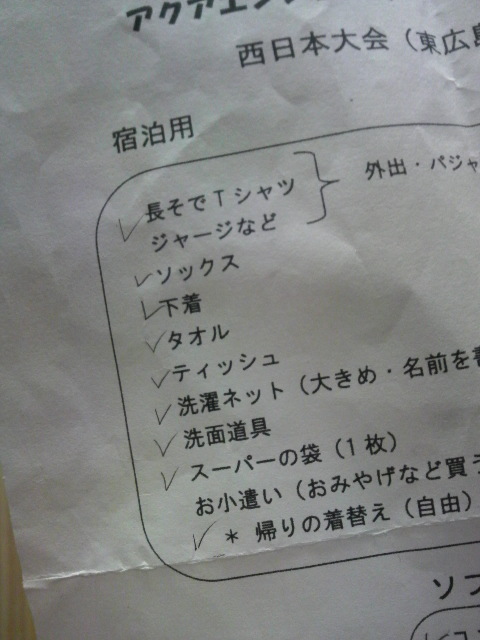 アクアエン
西日本大会（東広島
宿泊用
長そでTシャツ
ジャージなど
外出・パジャ
ソックス
下着
タオル
ティッシュ
洗濯ネット（大きめ・名前を書
洗面道具
スーパーの袋（1枚）
お小遣い（おみやげなど買う
＊ 帰りの着替え（自由）
ソフ